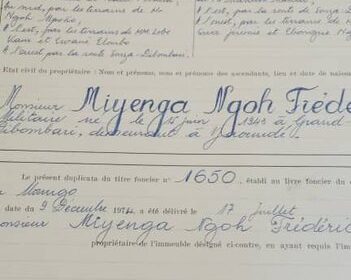 Au mid, par les terrains de Mr
Ngoh
A l'est, par les terrains de MM. Lobe
et Ewane Elombo
A l'ouest par la route Souza-Dibombari.
A l'ouest, par les terrains de
Etat civil du propriétaire : Nom et prénoms, nom et prénoms des ascendants, lieu et date de naissance
Monsieur Miyenga Ngoh Frédé
Militaire né le 15 juin 1943 à Grand-
Dibombari, demeurant à Yaoundé.
Le présent duplicata du titre foncier n° 1650, établi au livre foncier du
date du 9 Décembre 197 a été délivré le 17 juillet
Monsieur Miyenga Ngoh Frédéric
propriétaire de l'immeuble désigné ci-contre, en ayant requis l'im